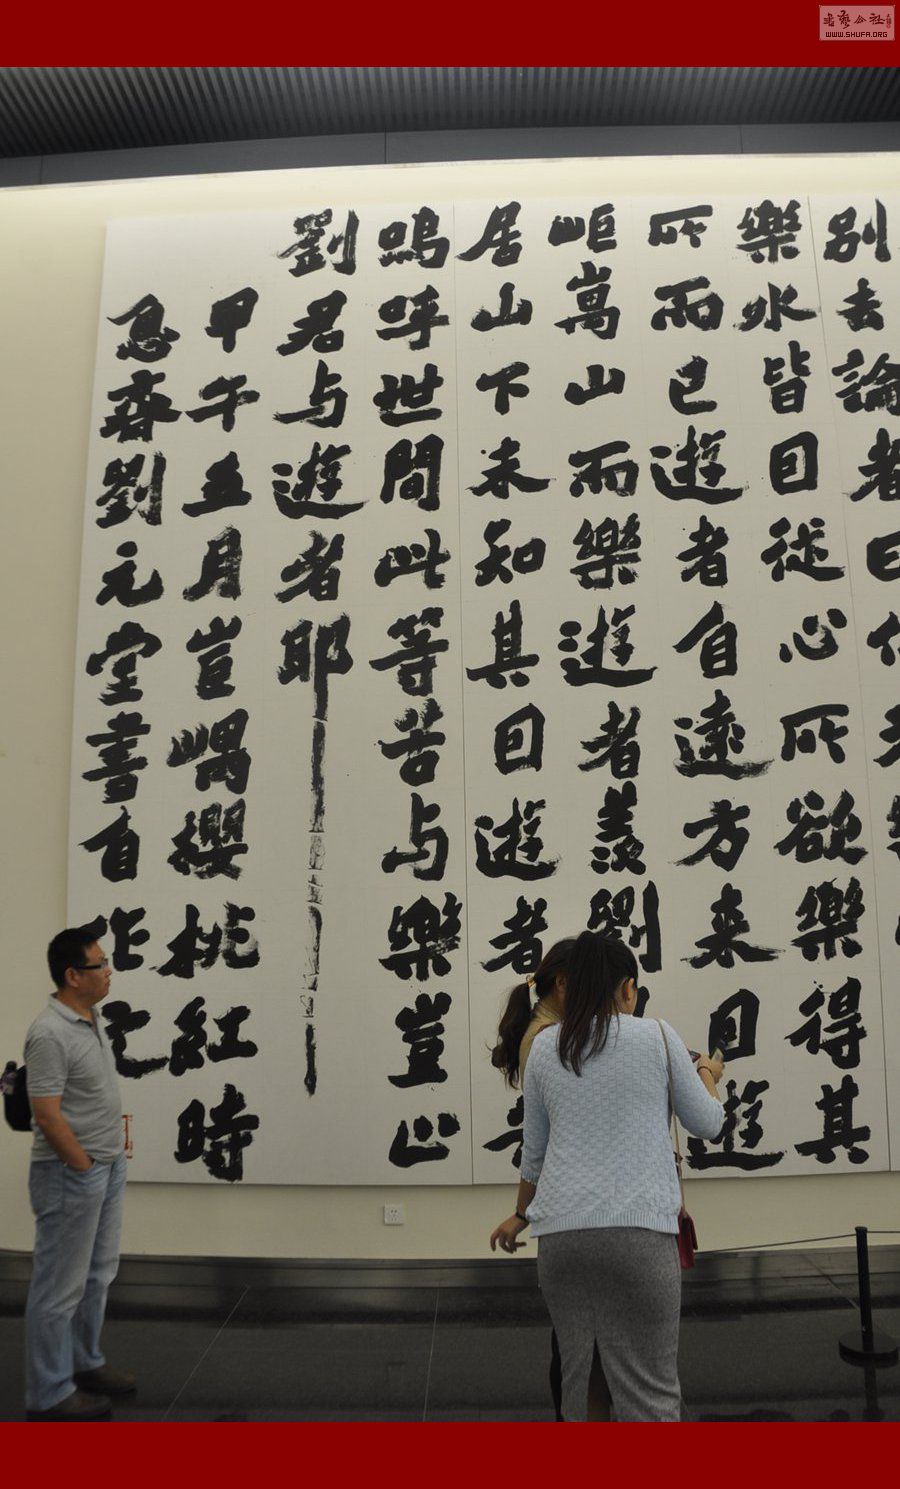 別去論者曰
樂水皆曰從心所欲樂得其
所而已遊者自遠方来曰遊
岠萬山而樂遊者羨劉
居山下未知其曰遊者
嗚呼世間此等苦与樂豈止
劉君与遊者耶
甲午五月豈嵎櫻桃紅時
忍齋劉元堂書自作文
书艺公社
WWW.SHUFA.ORG